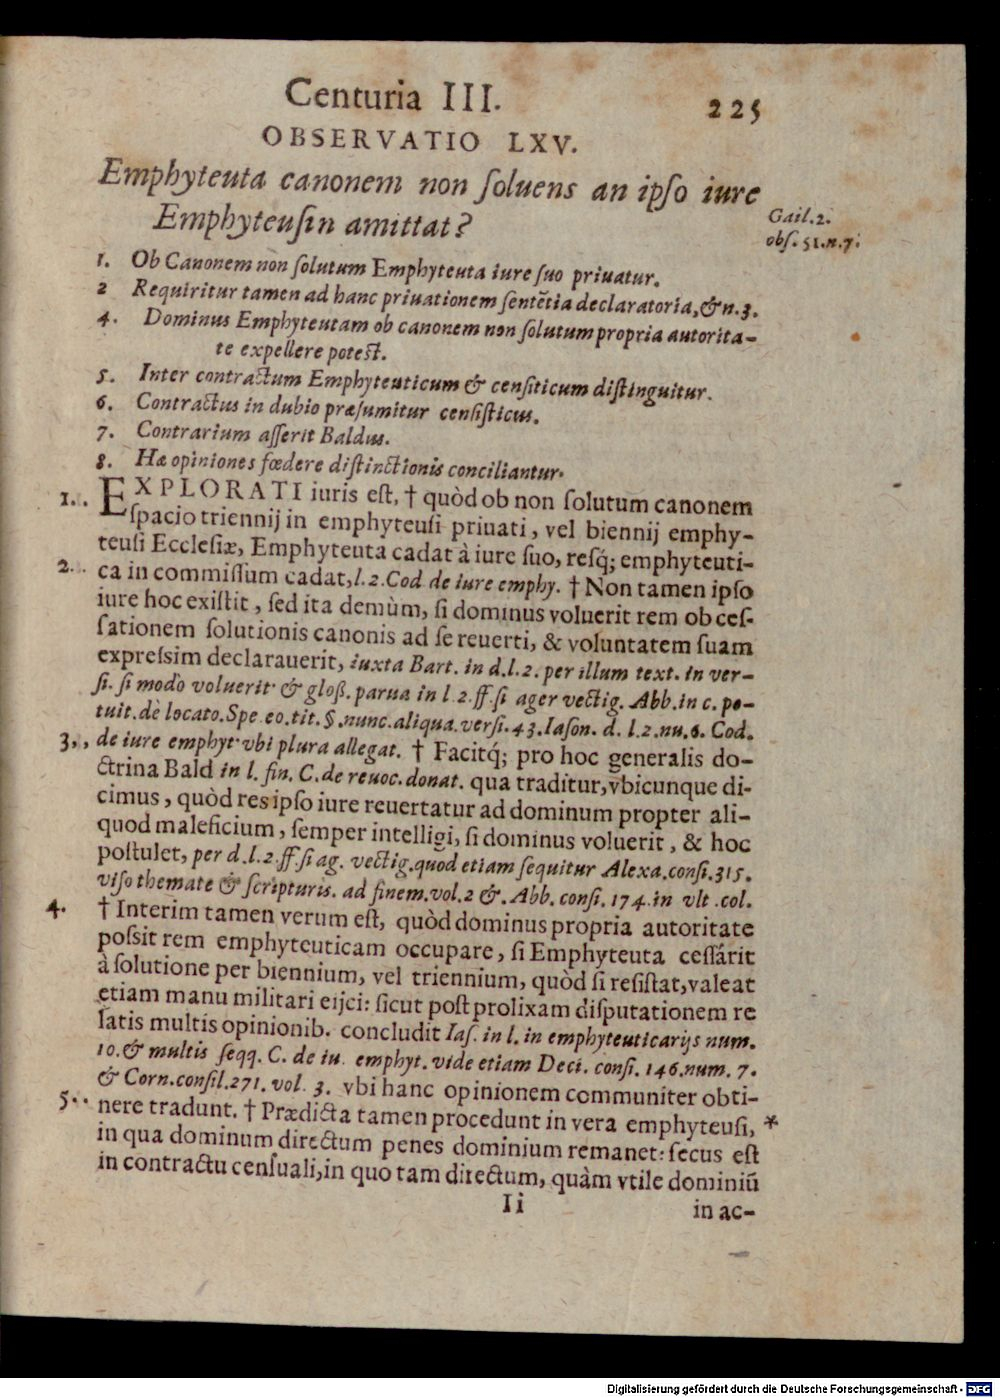 Centuria III. 225
OBSERVATIO LXV.
Emphyteuta canonem non ſoluens an ipſo iure
Emphyteuſin amittat?
Gail. 2.
obſ. 51. n. 7.
1. Ob Canonem non ſolutum Emphyteuta iure ſuo priuatur.
2 Requiritur tamen ad hanc priuationem ſentẽtia declaratoria, & n. 3.
4. Dominus Emphyteutam ob canonem non ſolutum propria autorita-
te expellere poteſt.
5. Inter contractum Emphyteuticum & cenſiticum diſtinguitur.
6. Contractus in dubio præſumitur cenſiſticus.
7. Contrarium aſſerit Baldus.
8. Hæ opiniones fœdere diſtinctionis conciliantur.
1. EXPLORATI iuris eſt, † quòd ob non ſolutum canonem
ſpacio triennij in emphyteuſi priuati, vel biennij emphy-
teuſi Eccleſiæ, Emphyteuta cadat à iure ſuo, reſq́; emphyteuti-
2. ca in commiſſum cadat, l. 2. Cod de iure emphy. † Non tamen ipſo
iure hoc exiſtit, ſed ita demùm, ſi dominus voluerit rem ob ceſ-
ſationem ſolutionis canonis ad ſe reuerti, & voluntatem ſuam
expreſsim declarauerit, iuxta Bart. in d. l. 2. per illum text. in ver-
ſi. ſi modò voluerit & gloß. parua in l. 2. ff. ſi ager vectig. Abb. in c. po-
tuit. de locato. Spe. eo. tit. §. nunc. aliqua. verſi. 43. Iaſon. d. l. 2. nu. 6. Cod.
3. de iure emphyt. vbi plura allegat. † Facitq́; pro hoc generalis do-
ctrina Bald in l. fin. C. de reuoc. donat. qua traditur, vbicunque di-
cimus, quòd res ipſo iure reuertatur ad dominum propter ali-
quod maleficium, ſemper intelligi, ſi dominus voluerit, & hoc
poſtulet, per d. l. 2. ff. ſi ag. vectig. quod etiam ſequitur Alexa. conſi. 315.
viſo themate & ſcripturis. ad finem. vol. 2 &. Abb. conſi. 174. in vlt. col.
4. † Interim tamen verum eſt, quòd dominus propria autoritate
poſsit rem emphyteuticam occupare, ſi Emphyteuta ceſſârit
à ſolutione per biennium, vel triennium, quòd ſi reſiſtat, valeat
etiam manu militari eijci: ſicut poſt prolixam diſputationem re
latis multis opinionib. concludit Iaſ. in l. in emphyteuticarijs num.
10. & multis ſeqq. C. de iu. emphyt. vide etiam Deci. conſi. 146. num. 7.
& Corn. conſil. 271. vol. 3. vbi hanc opinionem communiter obti-
5. nere tradunt. † Prædicta tamen procedunt in vera emphyteuſi, *
in qua dominum directum penes dominium remanet: ſecus eſt
in contractu cenſuali, in quo tam directum, quàm vtile dominiũ
Ii in ac-
Digitalisierung gefördert durch die Deutsche Forschungsgemeinschaft - DFG